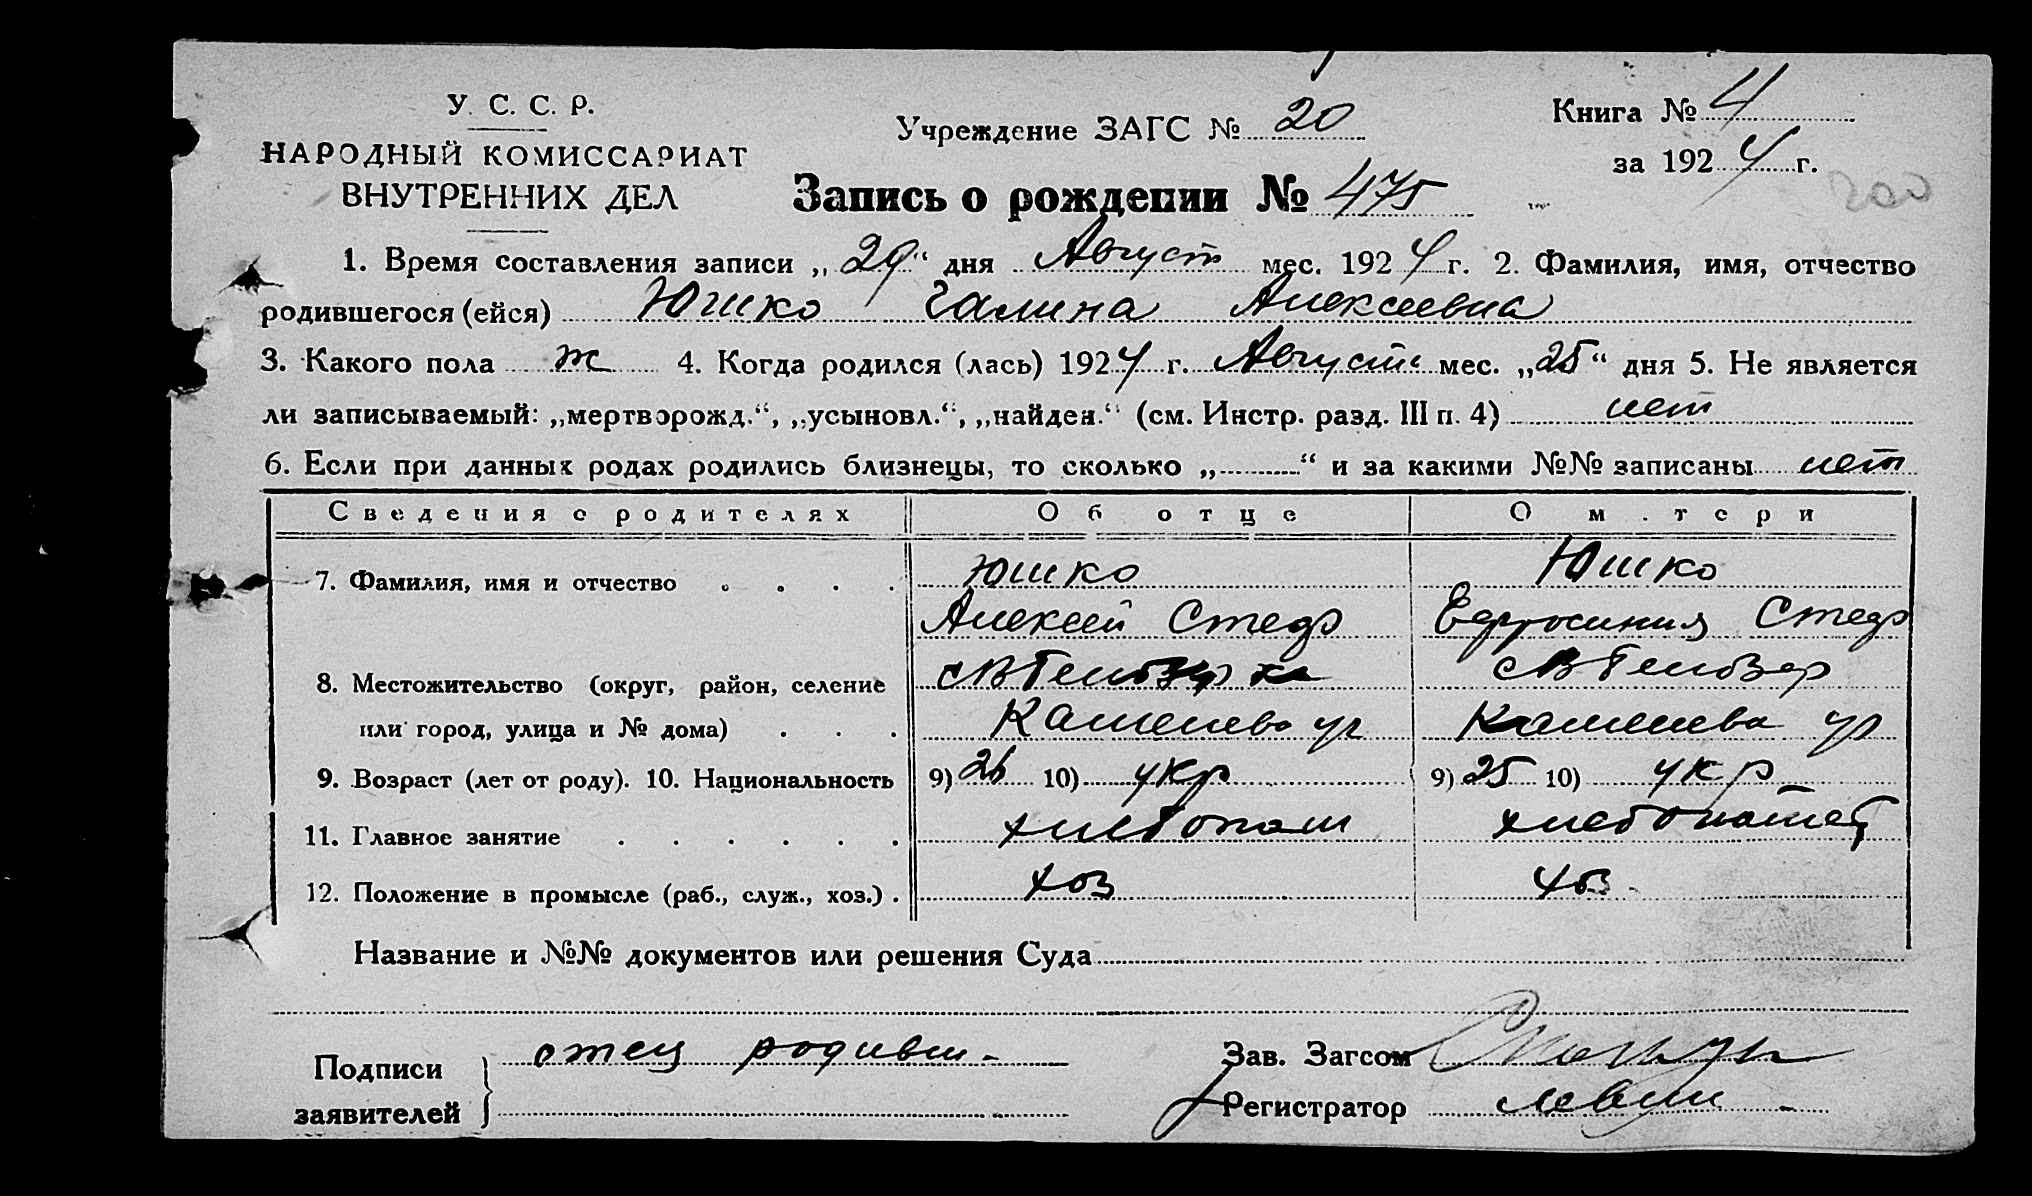 У. С. С. Р.
НАРОДНЫЙ КОМИССАРИАТ
ВНУТРЕННИХ ДЕЛ
Учреждение ЗАГС № 20
Книга № 4
за 1924 г.
Запись о рождении № 475
1. Время составления записи „29“ дня Август мес. 1924 г. 2. Фамилия, имя, отчество
родившегося (ейся) Юшко Галина Алексеевна
3. Какого пола ж 4. Когда родился (лась) 1924 г. Август мес. „25“ дня 5. Не является
ли записываемый: „мертворожд.“, „усыновл.“, „найден.“ (см. Инстр. разд. III п. 4) нет
6. Если при данных родах родились близнецы, то сколько „ “ и за какими №№ записаны нет
Сведения о родителях Об отце О м.тери
7. Фамилия, имя и отчество . . . . Юшко Юшко
Алексей Стеф Ефросиния Стеф
8. Местожительство (округ, район, селение
или город, улица и № дома) . . . Каменева ул Каменева ул
9. Возраст (лет от роду). 10. Национальность 9) 26 10) укр 9) 25 10) укр
11. Главное занятие . . . . . . хлебопаш хлебопашец
12. Положение в промысле (раб., служ., хоз.) . хоз хоз
Название и №№ документов или решения Суда
Подписи
заявителей
отец родивш-
Зав. Загсом
Регистратор